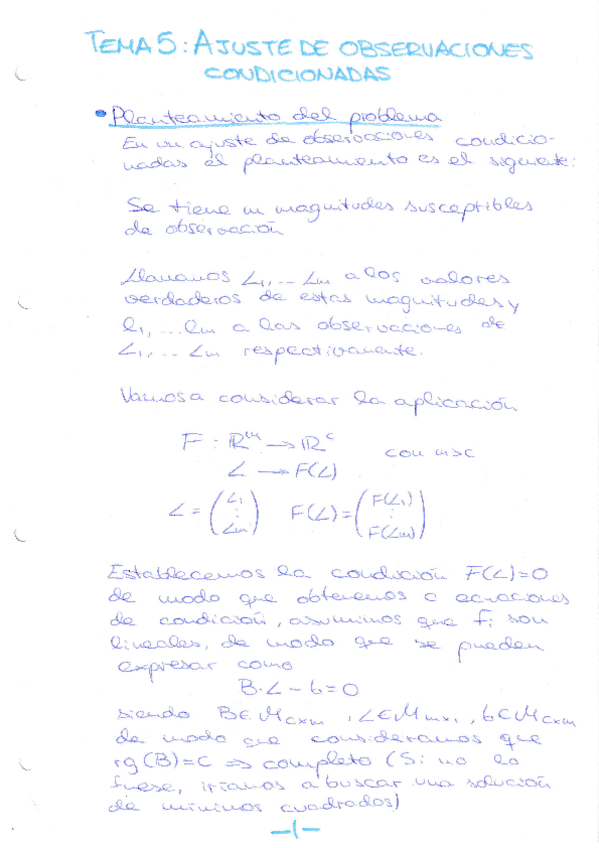 TEMA 5: AJUSTE DE OBSERVACIONES
CONDICIONADAS
• Planteamiento del problema
En un ajuste de observaciones condicio-
nadas el planteamiento es el siguiente:
Se tiene m magnitudes susceptibles
de observación
Llamamos L₁, ... Lm a los valores
verdaderos de estas magnitudes y
l₁, ... lm a las observaciones de
L₁, ... Lm respectivamente.
Vamos a considerar la aplicación
F : ℝᵐ → ℝᶜ con m>c
L → F(L)
L = (L₁ ⋮ Lm) F(L) = (F(L₁) ⋮ F(Lm))
Establecemos la condición F(L)=0
de modo que obtenemos c ecuaciones
de condición, asumimos que fi son
lineales, de modo que se pueden
expresar como
B·L - b = 0
siendo B∈Mcxm, L∈Mmx1, b∈Mcxm
de modo que consideramos que
rg(B)=C ⇒ completo (Si no lo
fuese, iríamos a buscar una solución
de mínimos cuadrados)
-1-